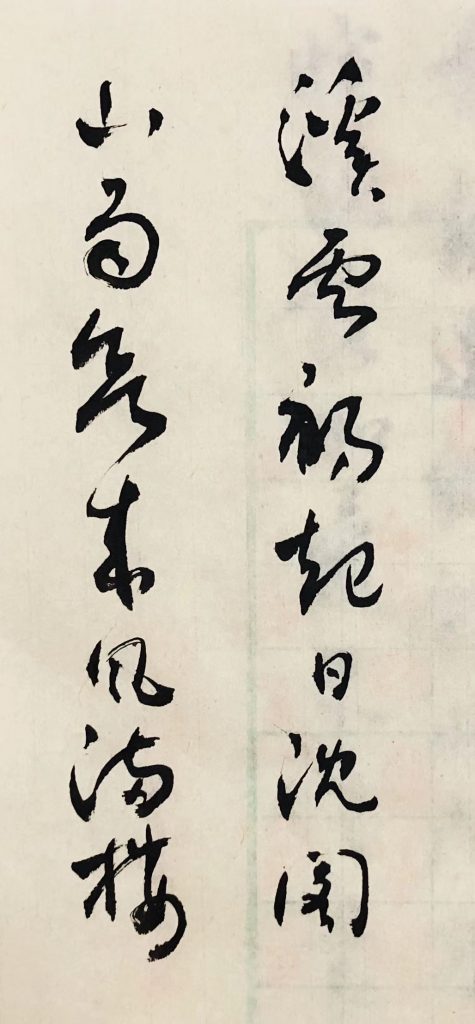 溪雲初起日沈閣
山雨欲來風滿樓